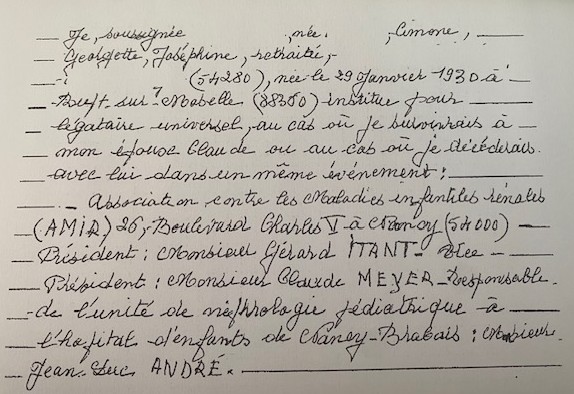 — Je, soussignée , née , Simone, —
— Georgette, Joséphine, retraitée, -
— (54280), née le 29 Janvier 1930 à
— sur Moselle (88360) institue pour —
— légataire universel, au cas où je survivrais à —
— mon épouse Claude ou au cas où je décéderais
— avec lui dans un même événement : —
— Association contre les Maladies infantiles rénales
— (AMIR) 26, Boulevard Charles V à Nancy (54000) —
— Président : Monsieur Gérard ITANT - Vice —
— Président : Monsieur Claude MEYER - Responsable -
— de l'unité de néphrologie pédiatrique à —
— l'hopital d'enfants de Nancy-Brabois : Monsieur
— Jean-Luc ANDRÉ. —